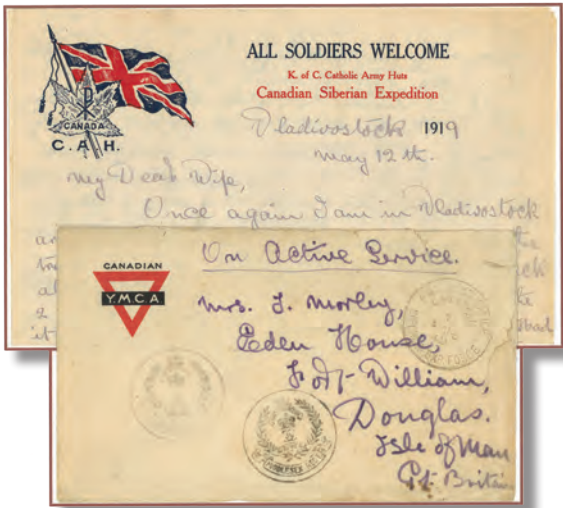 ALL SOLDIERS WELCOME
K. of C. Catholic Army Huts
Canadian Siberian Expedition
CANADA
C. A. H.
Vladivostock 1919
May 12th.
My Dear Wife,
Once again I am in Vladivostock
On Active Service.
CANADIAN
Y.M.C.A
Mrs. J. Morley,
Eden House,
Fort William,
Douglas.
Isle of Man
Gt. Britain